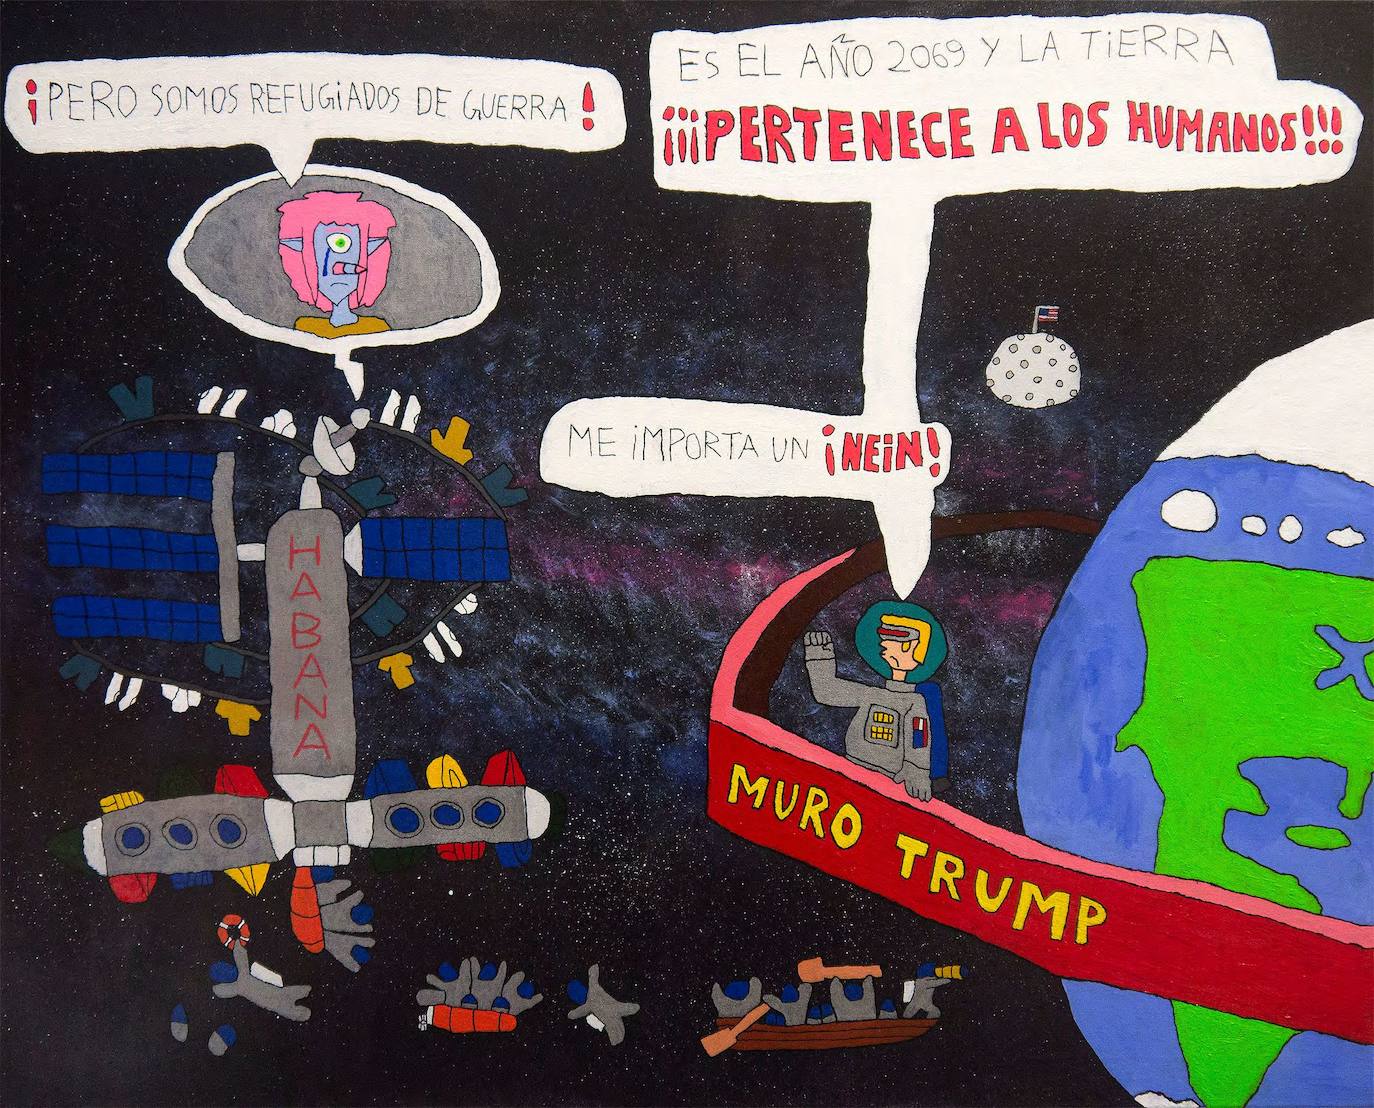 ¡PERO SOMOS REFUGIADOS DE GUERRA!
ES EL AÑO 2069 Y LA TIERRA
¡¡¡PERTENECE A LOS HUMANOS!!!
ME IMPORTA UN ¡NEIN!
HABANA
MURO TRUMP